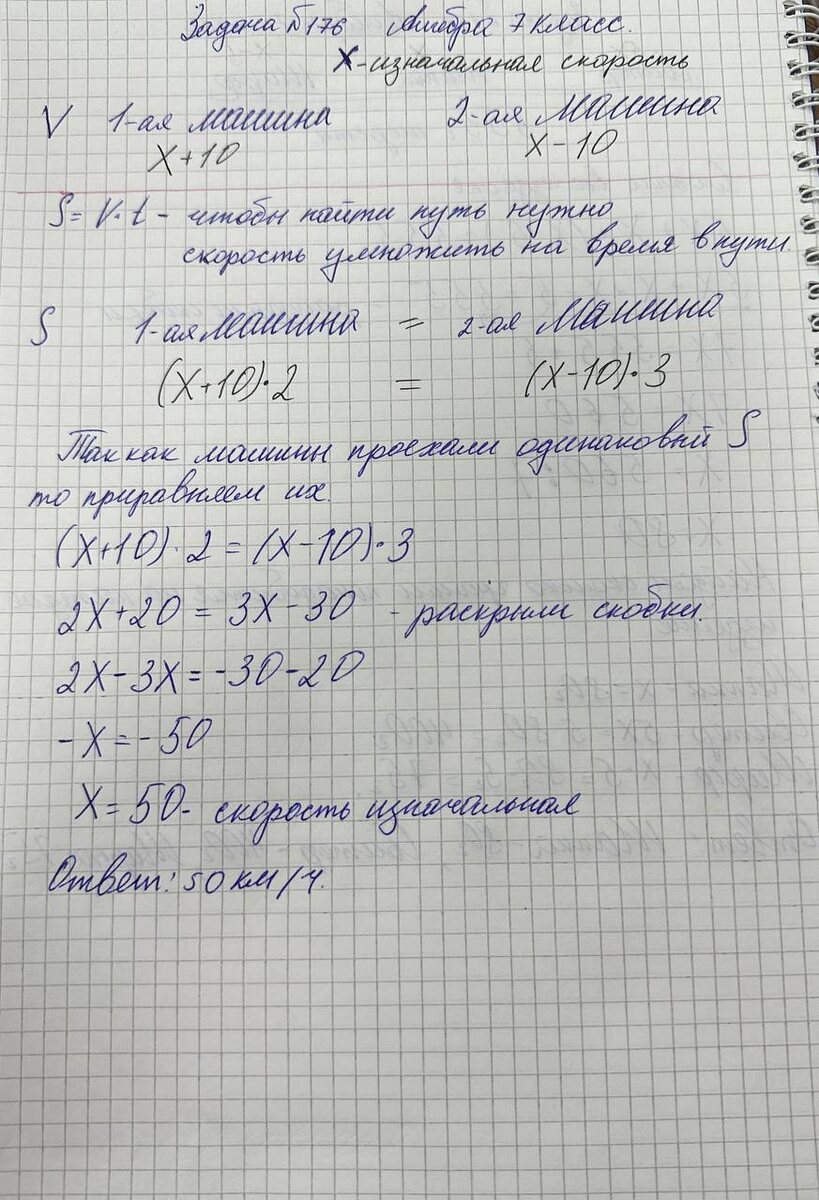 Задача №176 Алгебра 7 класс.
X - изначальная скорость
V 1-ая машина 2-ая машина
X+10 X-10
S = V·t - чтобы найти путь нужно
скорость умножить на время в пути.
S 1-ая машина = 2-ая машина
(X+10)·2 = (X-10)·3
Так как машины проехали одинаковый S
то приравняем их.
(X+10)·2 = (X-10)·3
2X+20 = 3X-30 - раскрыли скобки.
2X-3X = -30-20
-X = -50
X = 50 - скорость изначальная
Ответ: 50 км/ч.